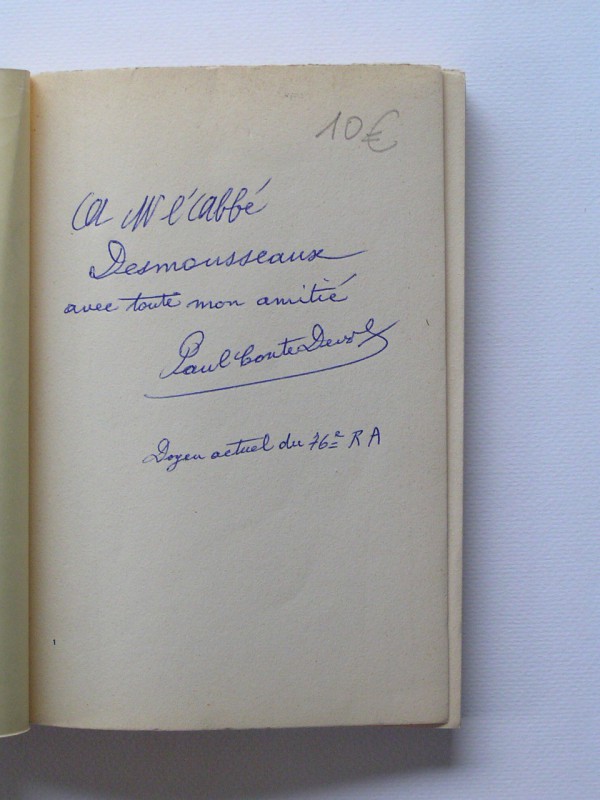 10€
A Mr l'abbé
Desmousseaux
avec toute mon amitié
Paul Conte Devol
Doyen actuel du 76e R A
1